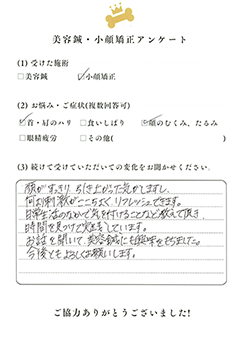 美容鍼・小顔矯正アンケート
(1) 受けた施術
□美容鍼 ☑小顔矯正
(2) お悩み・ご症状(複数回答可)
☑首・肩のハリ □食いしばり ☑顔のむくみ、たるみ
□眼精疲労 □その他( )
(3) 続けて受けていただいての変化をお聞かせください
顔がすっきり、引き上がった気がしますし、
何より刺激がここちよく、リフレッシュできます。
日常生活のなかで気を付けることなど教えて頂き、
時間を見つけて実践しています。
お話を聞いて、美容鍼にも興味をもちました。
今後ともよろしくお願いします。
ご協力ありがとうございました!